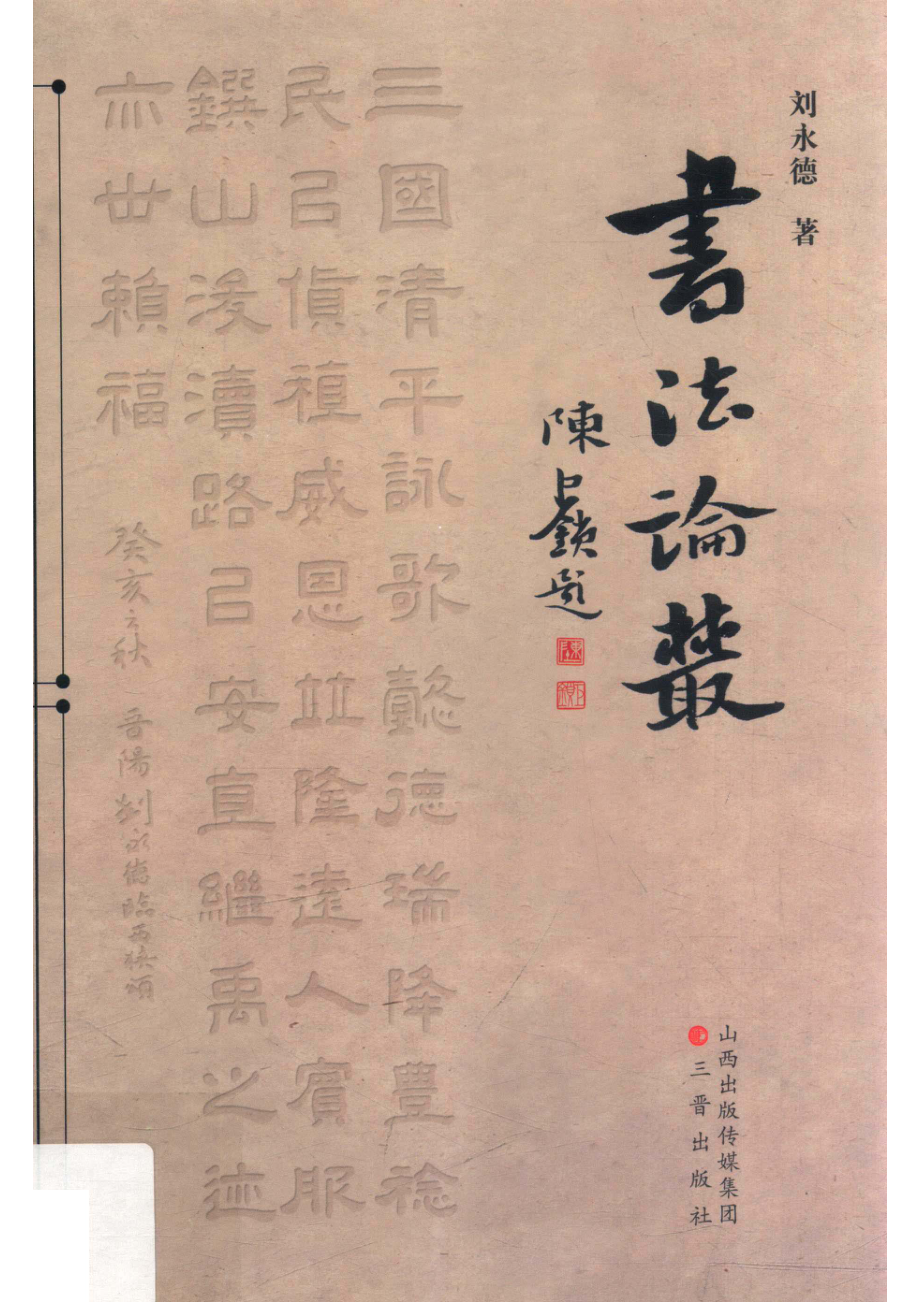 刘永德 著
書法論叢
陳巨鎖題
山西出版传媒集团
三晋出版社
三國清平詠歌懿德瑞降豊稔
民㠯貨稙威恩並隆遠人賓服
鐉山浚瀆路㠯安直繼禹之迹
亦世賴福
癸亥之秋 晋陽劉永德臨西狹頌